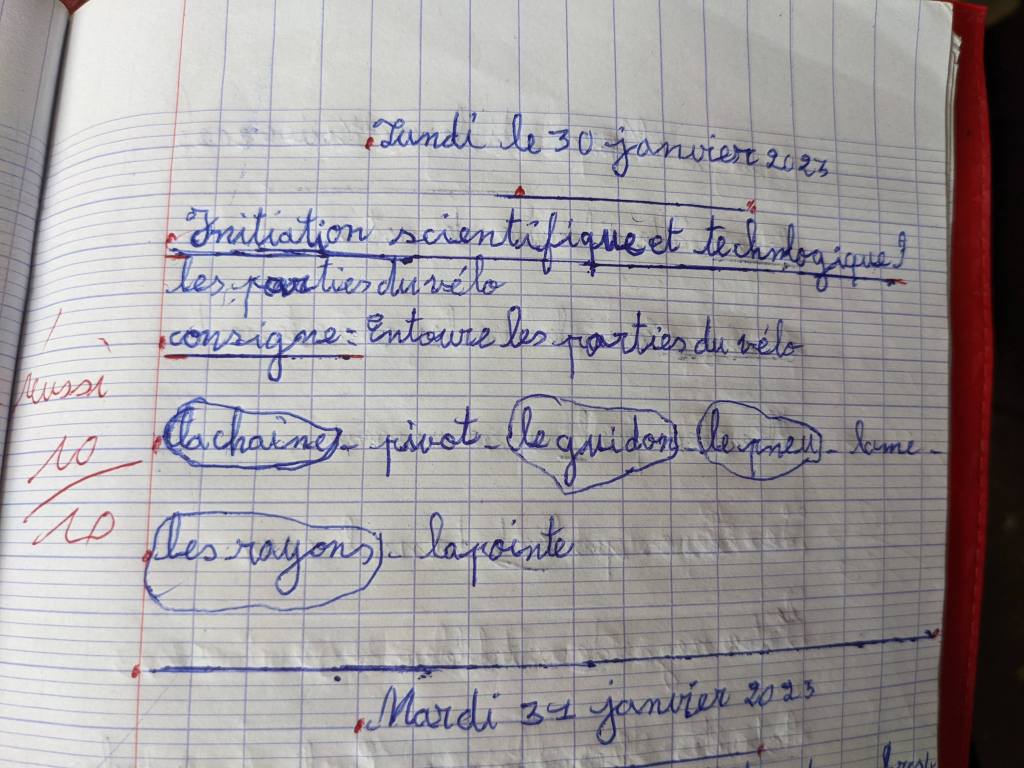 Lundi le 30 janvier 2023
Initiation scientifique et technologique
les parties du vélo
consigne: Entoure les parties du vélo
la chaine - pivot - le guidon - le pneu - lame -
les rayons - la pointe
10
10
Mardi 31 janvier 2023